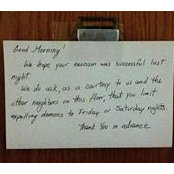 Good Morning!
We hope your exorcism was successful last
night.
We do ask, as a courtesy to us and the
other neighbors on this floor, that you limit
expelling demons to Friday or Saturday nights.
Thank You in advance.